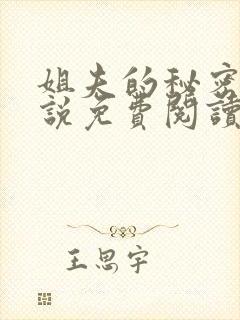 姐夫的秘密
說免費閱讀
王思宇